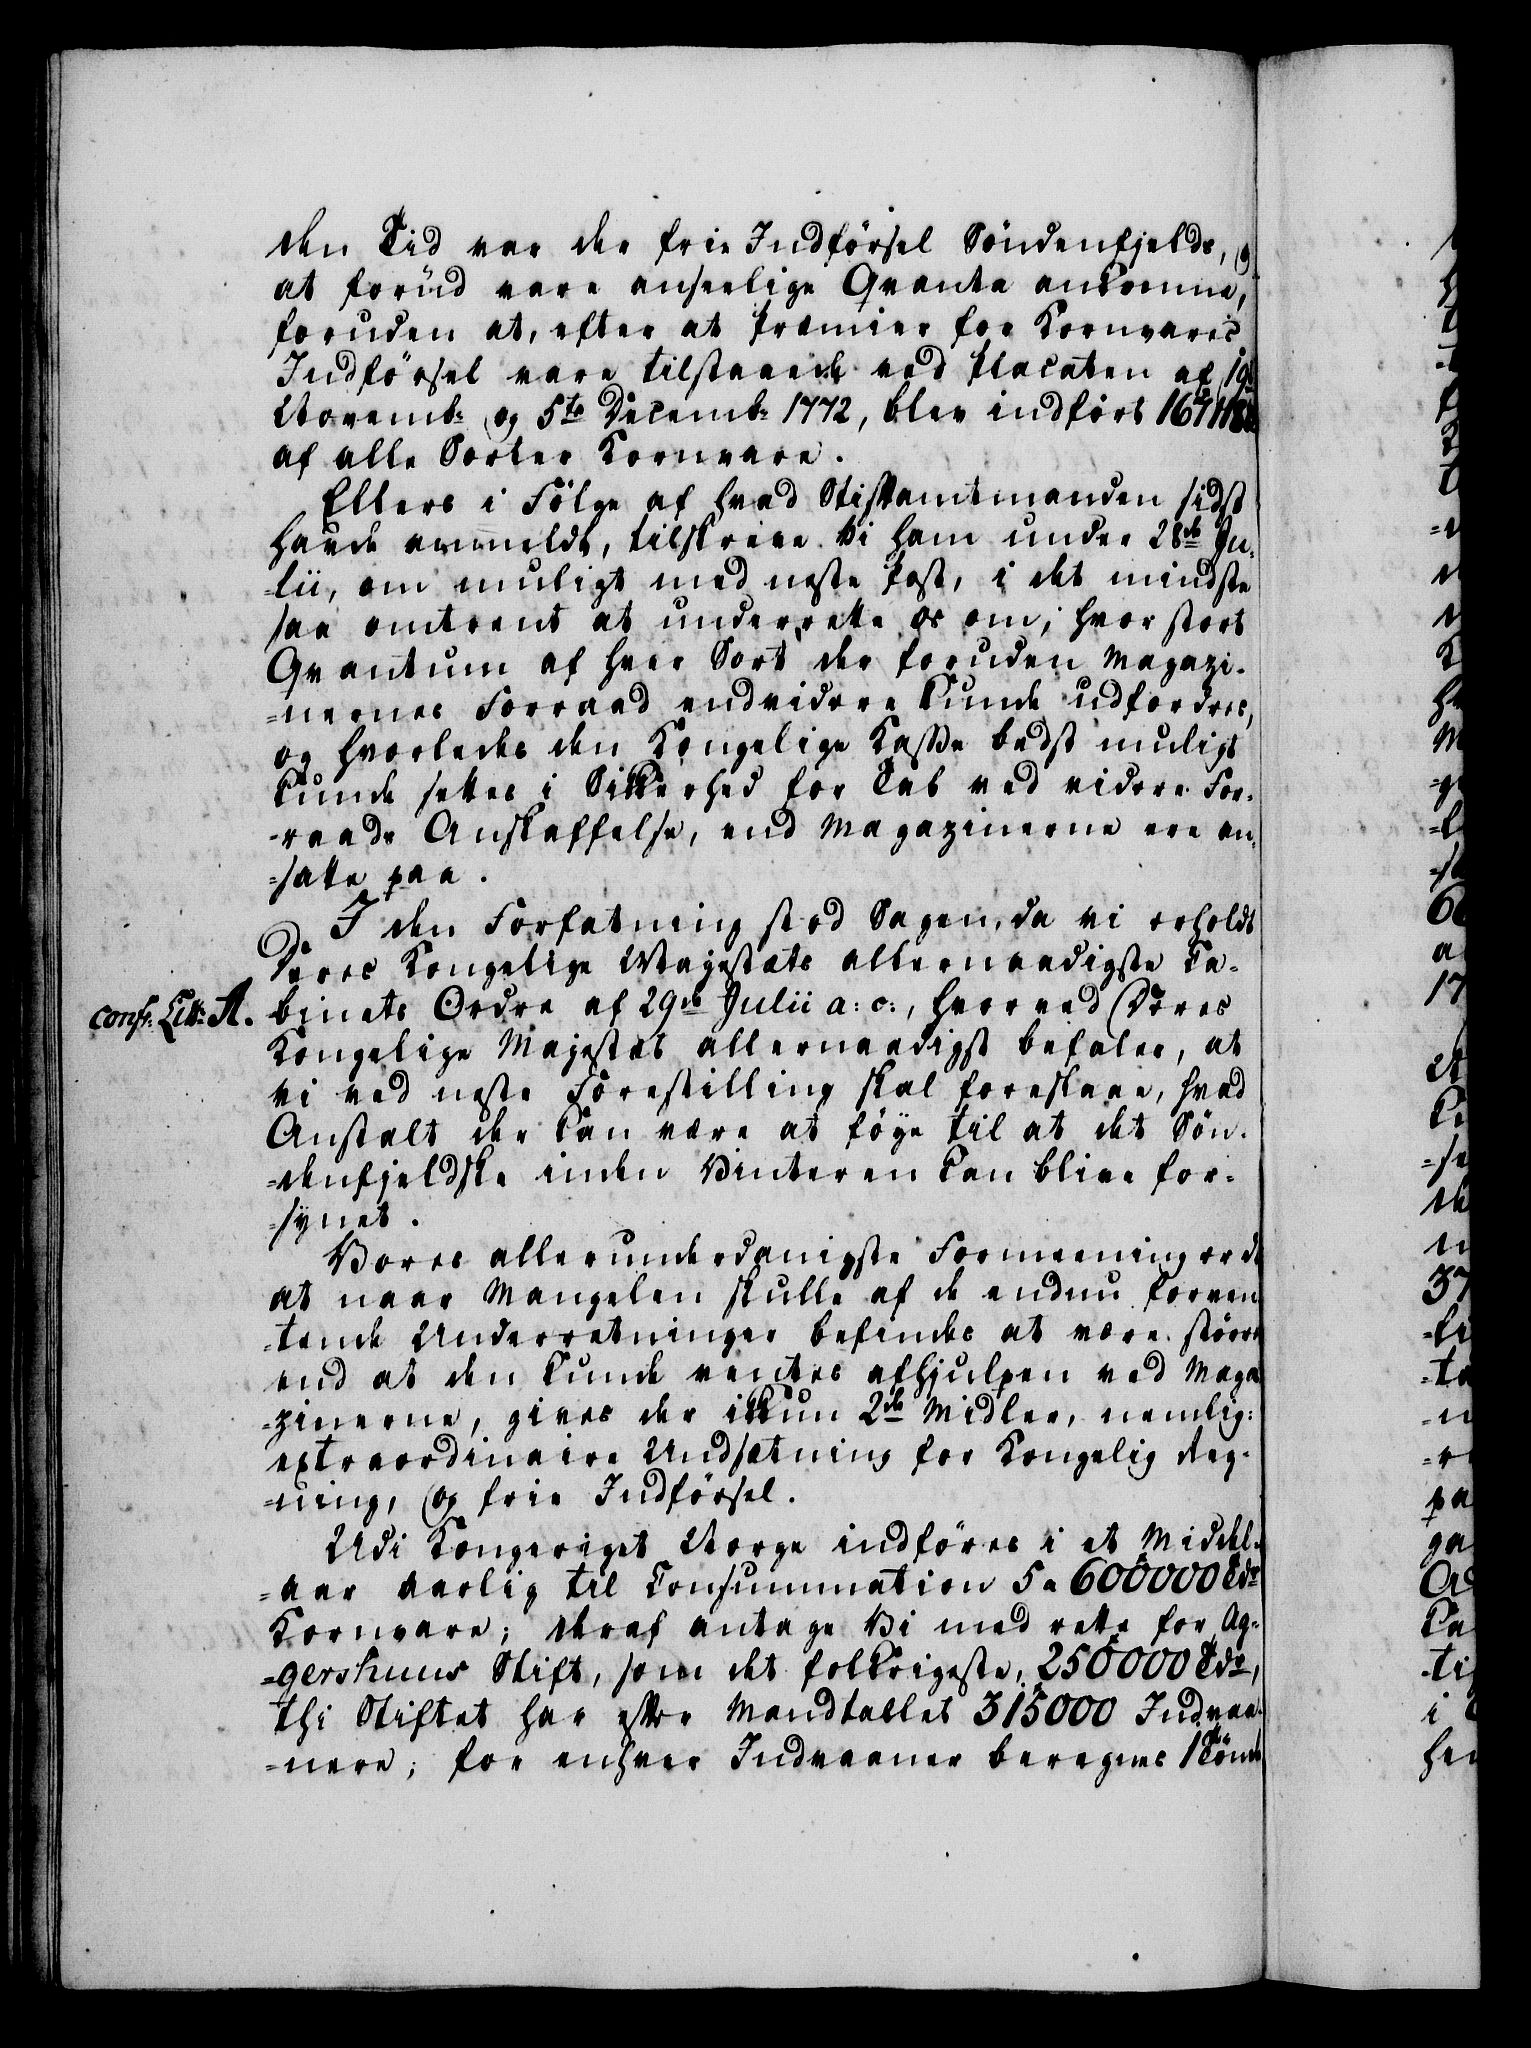 den Tid var der frie Indførsel Søndenfjelds, og
at forud vare anseelige Qvanta ankomne,
foruden at, efter at Præmier for Kornvares
Indførsel vare tilstaaede ved Placaten af 19de
Novemb: og 5te Decemb: 1772, blev indført
af alle Sorter Kornvare.
Ellers i Følge af hvad Stiftamtmanden sidst
havde anmeldt, tilskreve Vi ham under 28de Ju-
-lii, om muligt med neste Post, i det mindste
saa omtrent at underrette os om, hvor stort
Qvantum af hver Sort der foruden Magazi-
-nernes Forraad endvidere kunde udfordres,
og hvorledes den Kongelige Kasse bedst muligt
kunde settes i Sikkerhed for Tab ved videre For-
-raads Anskaffelse, end Magazinerne ere an-
-satte paa.
I den Forfatning stod Sagen, da vi erholdt
Deres Kongelige Majestæts allernaadigste Ca-
confr: Litr: A. binets Ordre af 29de Julii a: c:, hvorved Deres
Kongelige Majestæt allernaadigst befaler, at
vi ved neste Forestilling skal foreslaae, hvad
Anstalt der kan være at føye til at det Søn-
-denfjeldske inden Vinteren kan blive for-
-synet.
Vores allerunderdanigste Formeening er da
at naar Mangelen skulle af de endnu forven
-tende Underretninger befindes at være større
end at den kunde ventes afhjulpen ved Maga
-zinerne, gives der ikkun 2de Midler, nemlig:
extraordinaire Undsætning for Kongelig Reg-
-ning, og frie Indførsel.
Udi Kongeriget Norge indføres i et Middel-
-aar aarlig til Consummation 5 a 600000 Tdr
Kornvare; deraf antage Vi med rette for Ag-
-gershuus Stift, som det folkrigeste, 250000 Tdr,
thi Stiftet har efter Mandtallet 315000 Indvaa-
-nere; for enhver Indvaaner beregnes 1 Tønde